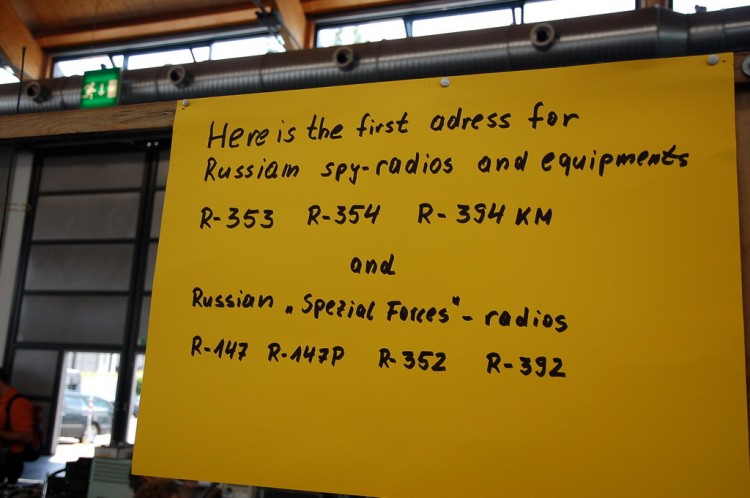 Here is the first adress for
Russiam spy-radios and equipments
R-353 R-354 R-394 KM
and
Russian „Spezial Forces"-radios
R-147 R-147P R-352 R-392